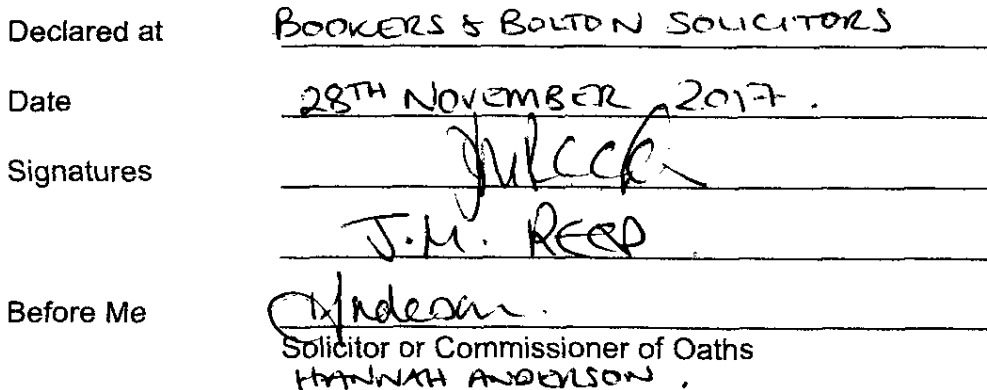 Declared at BOOKERS & BOLTON SOLICITORS
Date 28TH NOVEMBER 2017.
Signatures
J.M. REED
Before Me HAnderson.
Solicitor or Commissioner of Oaths
HANNAH ANDERSON.